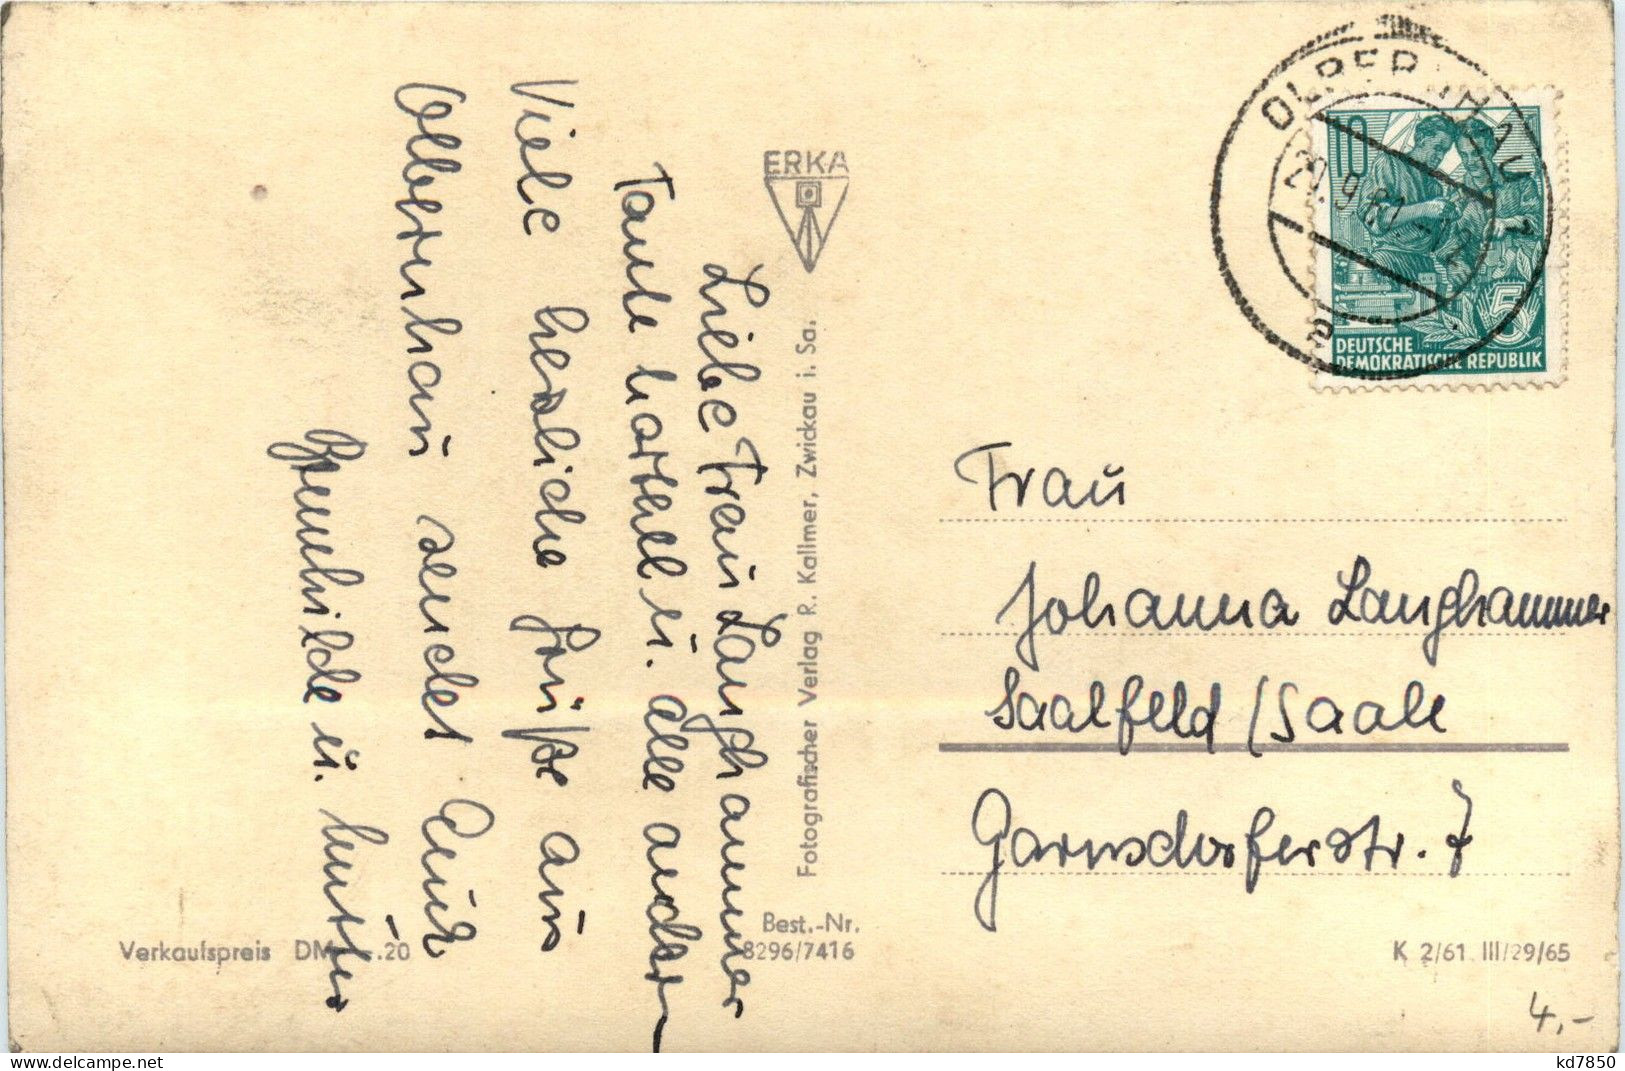 Liebe Frau Langhammer
Tante u. alle andern
Viele herzliche Grüße aus
Olbernhau sendet Euch
u. Mutter
ERKA
Fotografischer Verlag R. Kallmer, Zwickau i. Sa.
Best.-Nr.
8296/7416
Verkaufspreis DM -.20
OLBERNHAU 1
.9.61.-12
a
10
5
DEUTSCHE
DEMOKRATISCHE REPUBLIK
Frau
Johanna Langhammer
Saalfeld/Saale
Garnsdorferstr. 7
K 2/61 III/29/65
4,-
kd7850